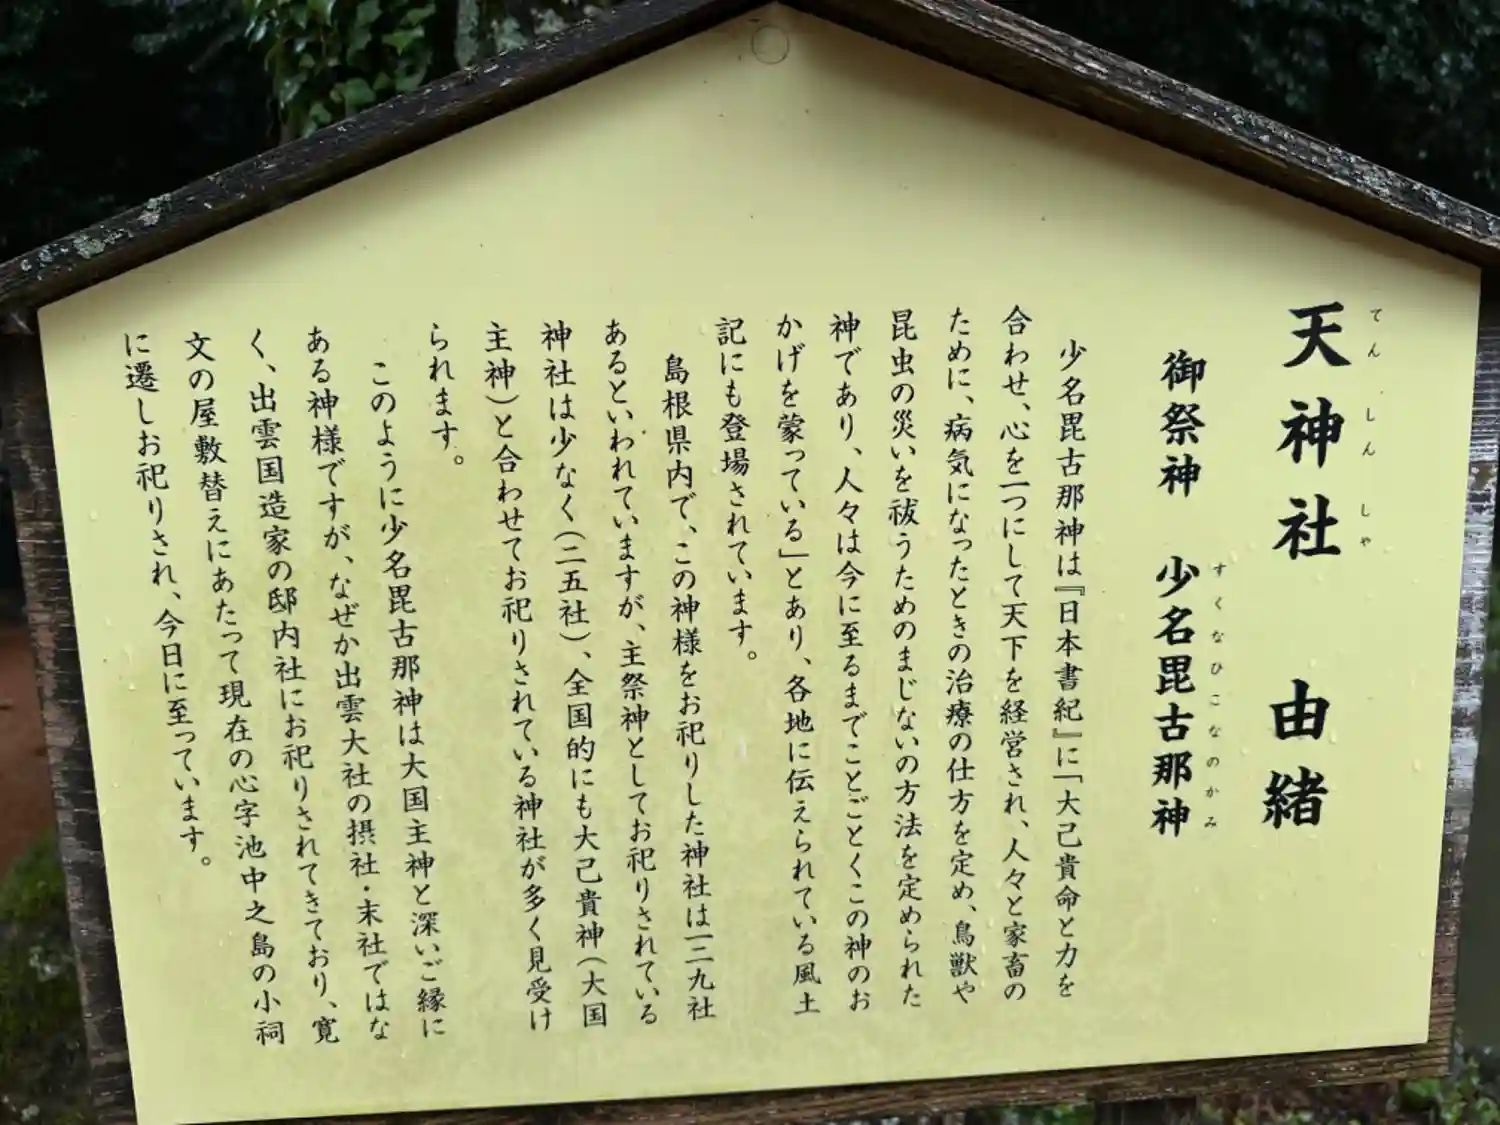 天神社 由緒
てんしんしゃ
御祭神 少名毘古那神
すくなひこなのかみ
少名毘古那神は『日本書紀』に「大己貴命と力を
合わせ、心を一つにして天下を経営され、人々と家畜の
ために、病気になったときの治療の仕方を定め、鳥獣や
昆虫の災いを祓うためのまじないの方法を定められた
神であり、人々は今に至るまでことごとくこの神のお
かげを蒙っている」とあり、各地に伝えられている風土
記にも登場されています。
島根県内で、この神様をお祀りした神社は一二九社
あるといわれていますが、主祭神としてお祀りされている
神社は少なく（二五社）、全国的にも大己貴神（大国
主神）と合わせてお祀りされている神社が多く見受け
られます。
このように少名毘古那神は大国主神と深いご縁に
ある神様ですが、なぜか出雲大社の摂社・末社ではな
く、出雲国造家の邸内社にお祀りされてきており、寛
文の屋敷替えにあたって現在の心字池中之島の小祠
に遷しお祀りされ、今日に至っています。